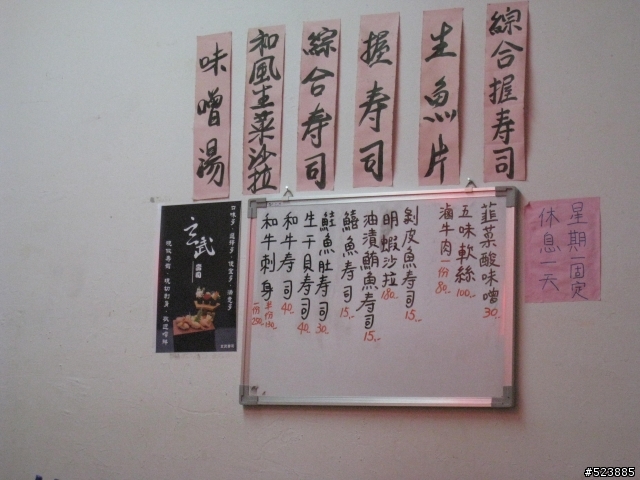 綜合握寿司
生魚片
握寿司
綜合寿司
和風生菜沙拉
味噌湯
星期一固定
休息一天
韮菜酸味噌 30
五味軟絲 100
滷牛肉一份 80
剝皮魚寿司 15
明蝦沙拉 180
油漬鮪魚寿司 15
鱚魚寿司 15
鮭魚肚寿司 30
生干貝寿司 40
和牛寿司 40
和牛刺身
玄武
寿司
#523885